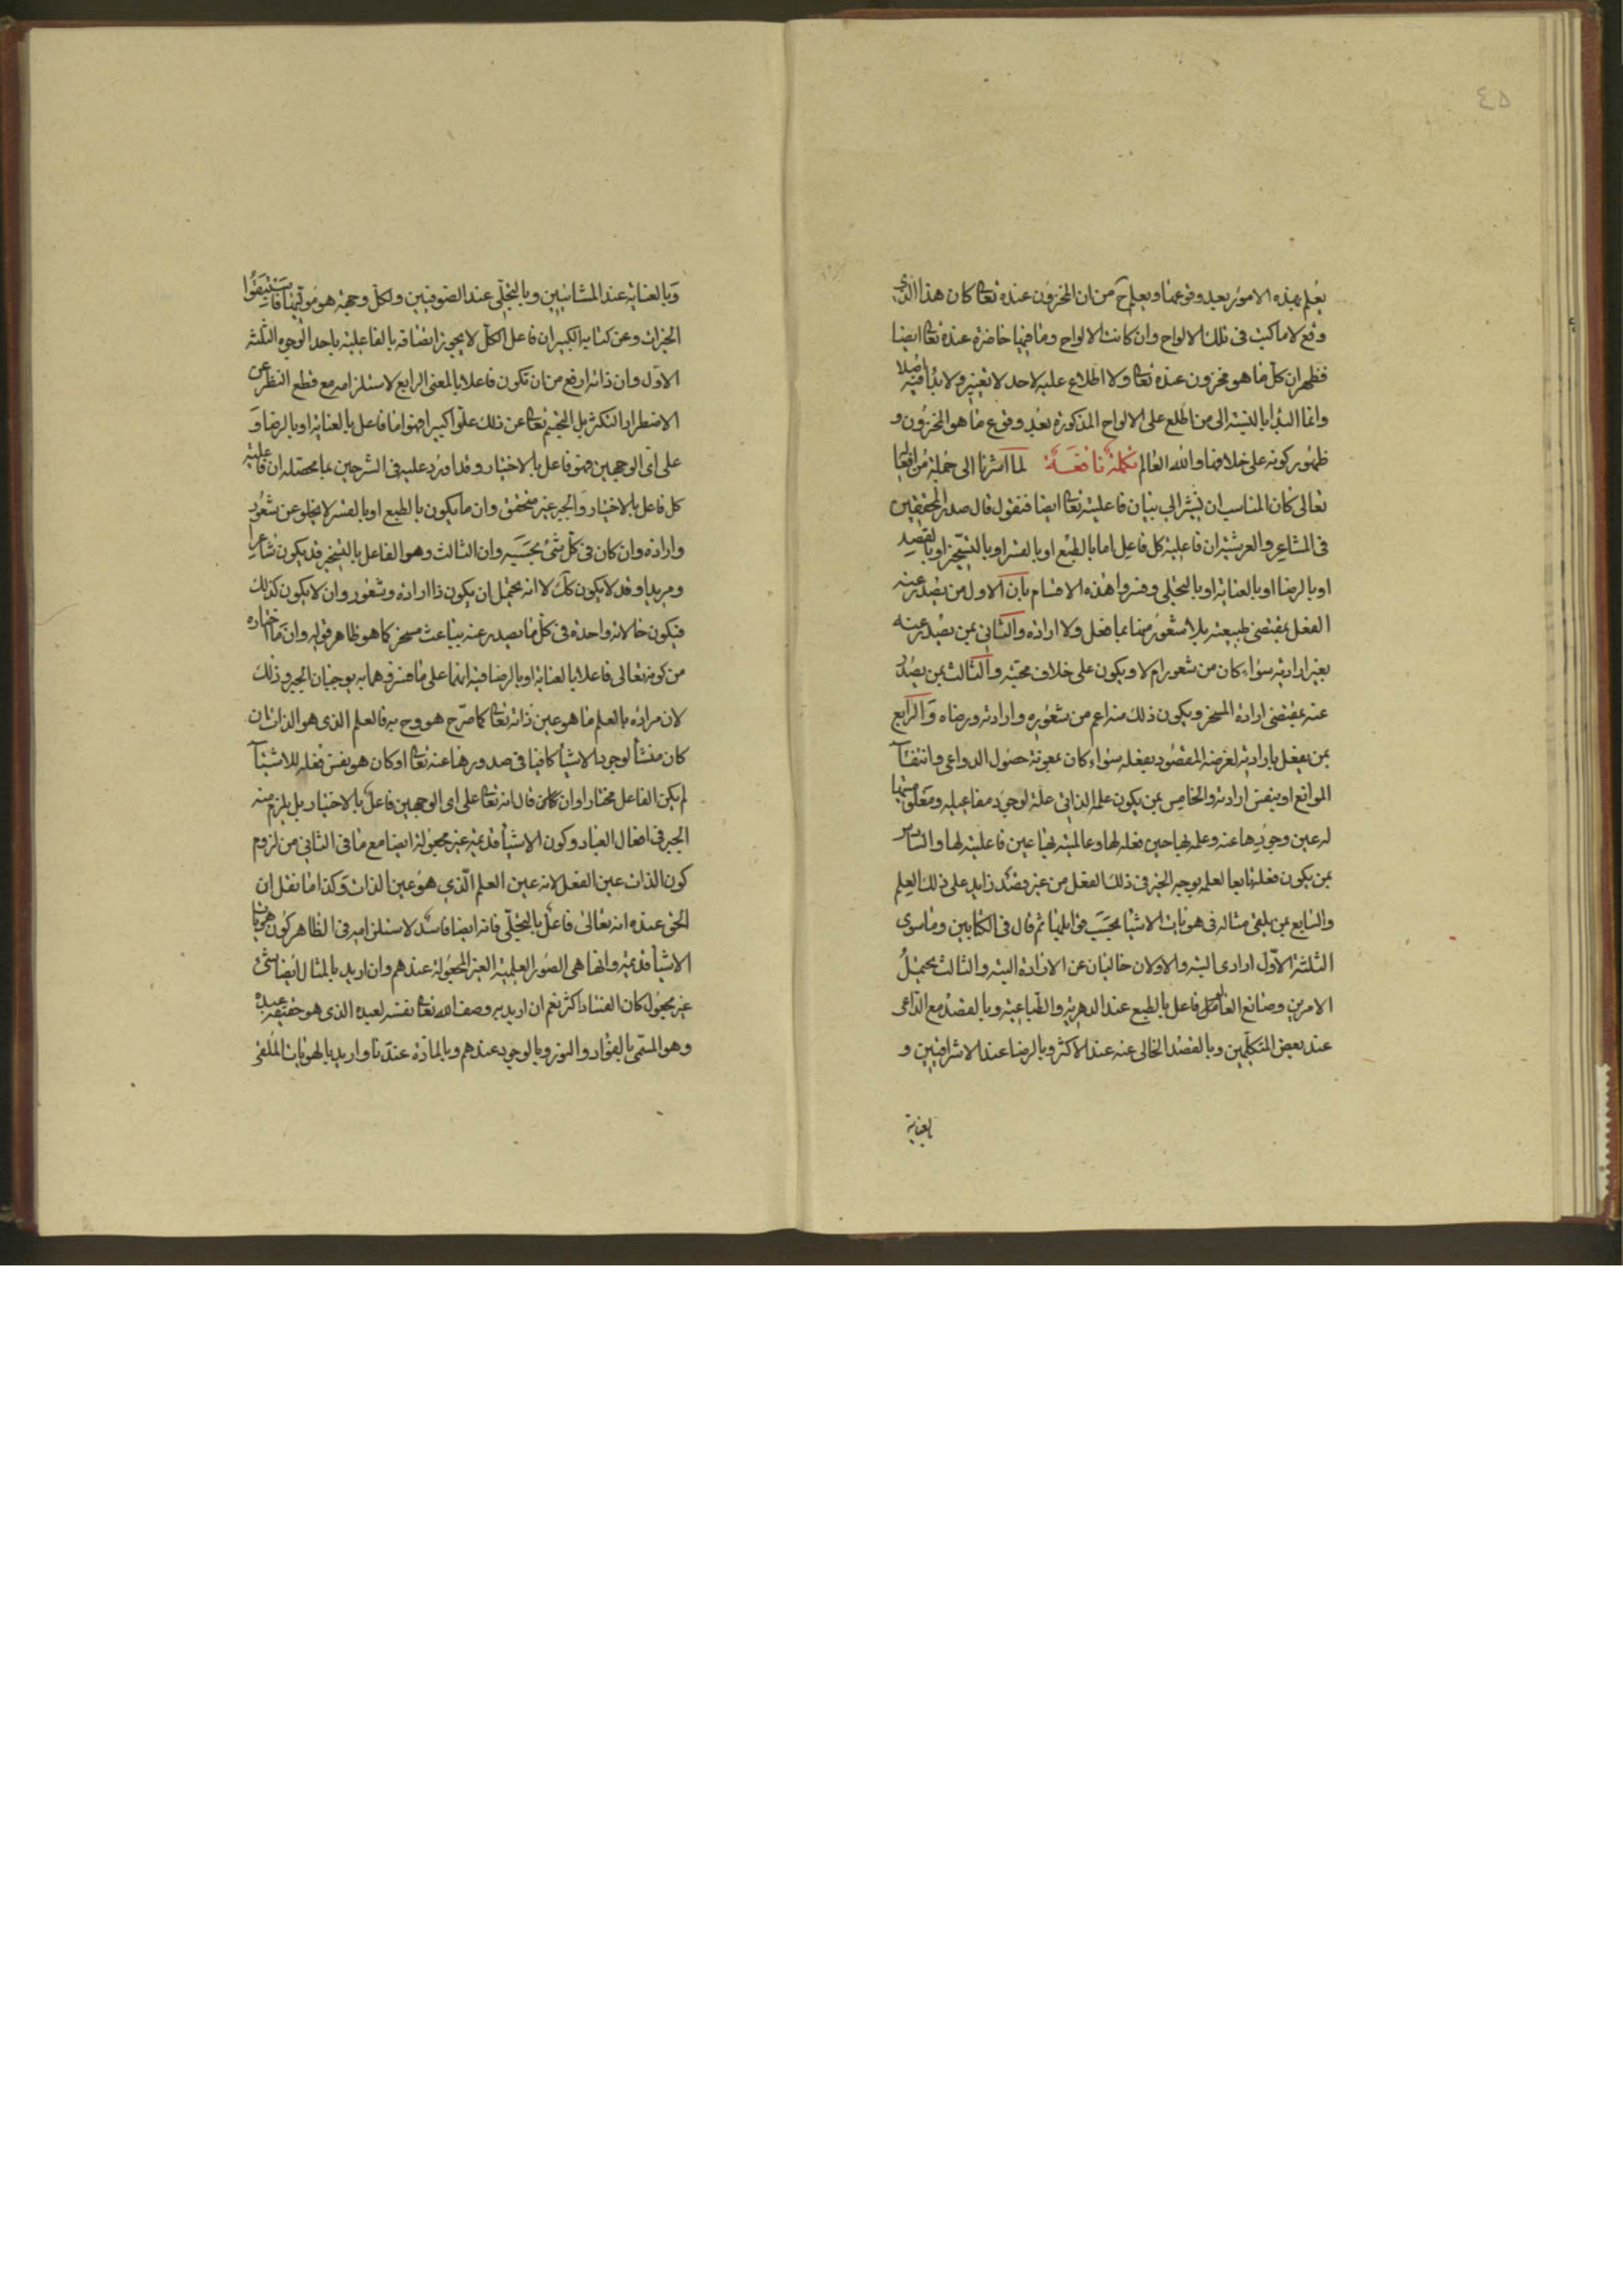 ٤٥
يعلم بهذه الامور بعد وقوعها ويعلم ح من ان المخزون عنده تعا كان هذا الذى
وقع لا ما كتب فى تلك الالواح وان كانت الالواح وما فيها حاضرة عنده تعا ايضا
فظهر ان كل ما هو مخزون عنده تعا ولا اطلاع عليه لاحد لا تغيير ولا بداء فيه اصلا
وانما البدا بالنسبة الى من اطلع على الالواح المذكورة بعد وقوع ما هو المخزون و
ظهور كونه على خلافها والله العالم تكملة نافعة لما اشرنا الى جملة من افعالها
تعالى كان المناسب ان نشير الى بيان فاعليته تعا ايضا فنقول قال صدر المحققين
فى المشاعر والعرشية ان فاعلية كل فاعل اما بالطبع او بالقسر او بالتسخير او بالقصد
او بالرضا او بالعناية او بالتجلى وفسروا هذه الاقسام بان الاول من يصدر عنه
الفعل بمقتضى طبيعته بلا شعور منها بما فعل ولا ارادة والثانى بمن يصدر عنه
بغير ارادته سواء كان من شعور ام لا ويكون على خلاف محبته والثالث بمن يصدر
عنه بمقتضى ارادة المسخر ويكون ذلك منه اعم من شعوره وارادته ورضاه والرابع
بمن يفعل بارادته لغرضه المقصود بفعله سواء كان بمعونة حصول الدواعى وانتفآء
الموانع او بنفس ارادته والخامس بمن يكون علمه الذاتى علة لوجود مفاعيله ومعلومتها
له عين وجودها عنه وعلمه بها حين فعله لها وعالميته بها عين فاعليته لها والسادس
بمن يكون فعله تابعا لعلمه بوجه الخير فى ذلك الفعل من غير قصد زايد على ذلك العلم
والسابع بمن يلقى مثاله فى هويات الاشيا بحسب قوابلها ثم قال فى الكتابين وما سوى
الثلثة الاول ارادى البتة والاولان خاليان عن الارادة البتة والثالث يحتمل
الامرين وصانع العالم فاعل بالطبع عند الدهرية والطباعية وبالقصد مع الداعى
عند بعض المتكلمين وبالقصد الخالى عنه عند الاكثر وبالرضا عند الاشراقيين و
بالعناية
وبالعناية عند المشائيين وبالتجلى عند الصوفيين ولكل وجهة هو موليها فاستبقوا
الخيرات وعن كتابه الكبير ان فاعل الكل لا يجوز اتصافه بالفاعلية باحد الوجوه الثلثة
الاول وان ذاته ارفع من ان تكون فاعلا بالمعنى الرابع لاستلزامه مع قطع النظر عن
الاضطرار التكثر بل التجسم تعا عن ذلك علوا كبيرا فهو اما فاعل بالعناية او بالرضا و
على اى الوجهين فهو فاعل بالاختيار وقد اورد عليه فى الشرحين بما محصله ان فاعلية
كل فاعل بالاختيار والجبر غير متحقق وان ما يكون بالطبع او بالقسر لا يخلو عن شعور
وارادة وان كان فى كل شئ بحسبه وان الثالث وهو الفاعل بالتسخير قد يكون شاعرا
ومريدا وقد لا يكون كك لا انه يحتمل ان يكون ذا ارادة وشعور وان لا يكون كذلك
فيكون حالاته واحدة فى كل ما يصدر عنه بباعث مسخر كما هو ظاهر قوله وان ما اختاره
من كونه تعالى فاعلا بالعناية او بالرضا فيه انهما على ما فسروهما به يوجبان الجبر وذلك
لان مراده بالعلم ما هو عين ذاته تعا كما صرح هو وح به فالعلم الذى هو الذات ان
كان منشأ لوجود الاشيأ كافيا فى صدورها عنه تعا او كان هو نفس فعله للاشيآء
لم يكن الفاعل مختارا وان قال انه تعا على اى الوجهين فاعل بالاختيار بل يلزم منه
الجبر فى افعال العباد وكون الاشيأ قديمة غير مجعولة ايضا مع ما فى الثانى من لزوم
كون الذات عين الفعل لانه عين العلم الذي هو عين الذات وكذا ما نقل ان
الحق عنده انه تعالى فاعل بالتجلى فانه ايضا فاسد لاستلزامه فى الظاهر كون هويات
الاشيأ قديمة وانها هى الصور العلمية الغير المجعولة عندهم وان اريد بالمثال ايضا شئ
غير مجعول كان الفساد اكثر نعم ان اريد به وصف الله تعا نفسه لعبده الذى هو حقيقة عبده
وهو المسمى بالفؤاد والنور وبالوجود عندهم وبالمادة عندنا واريد بالهويات الملقى